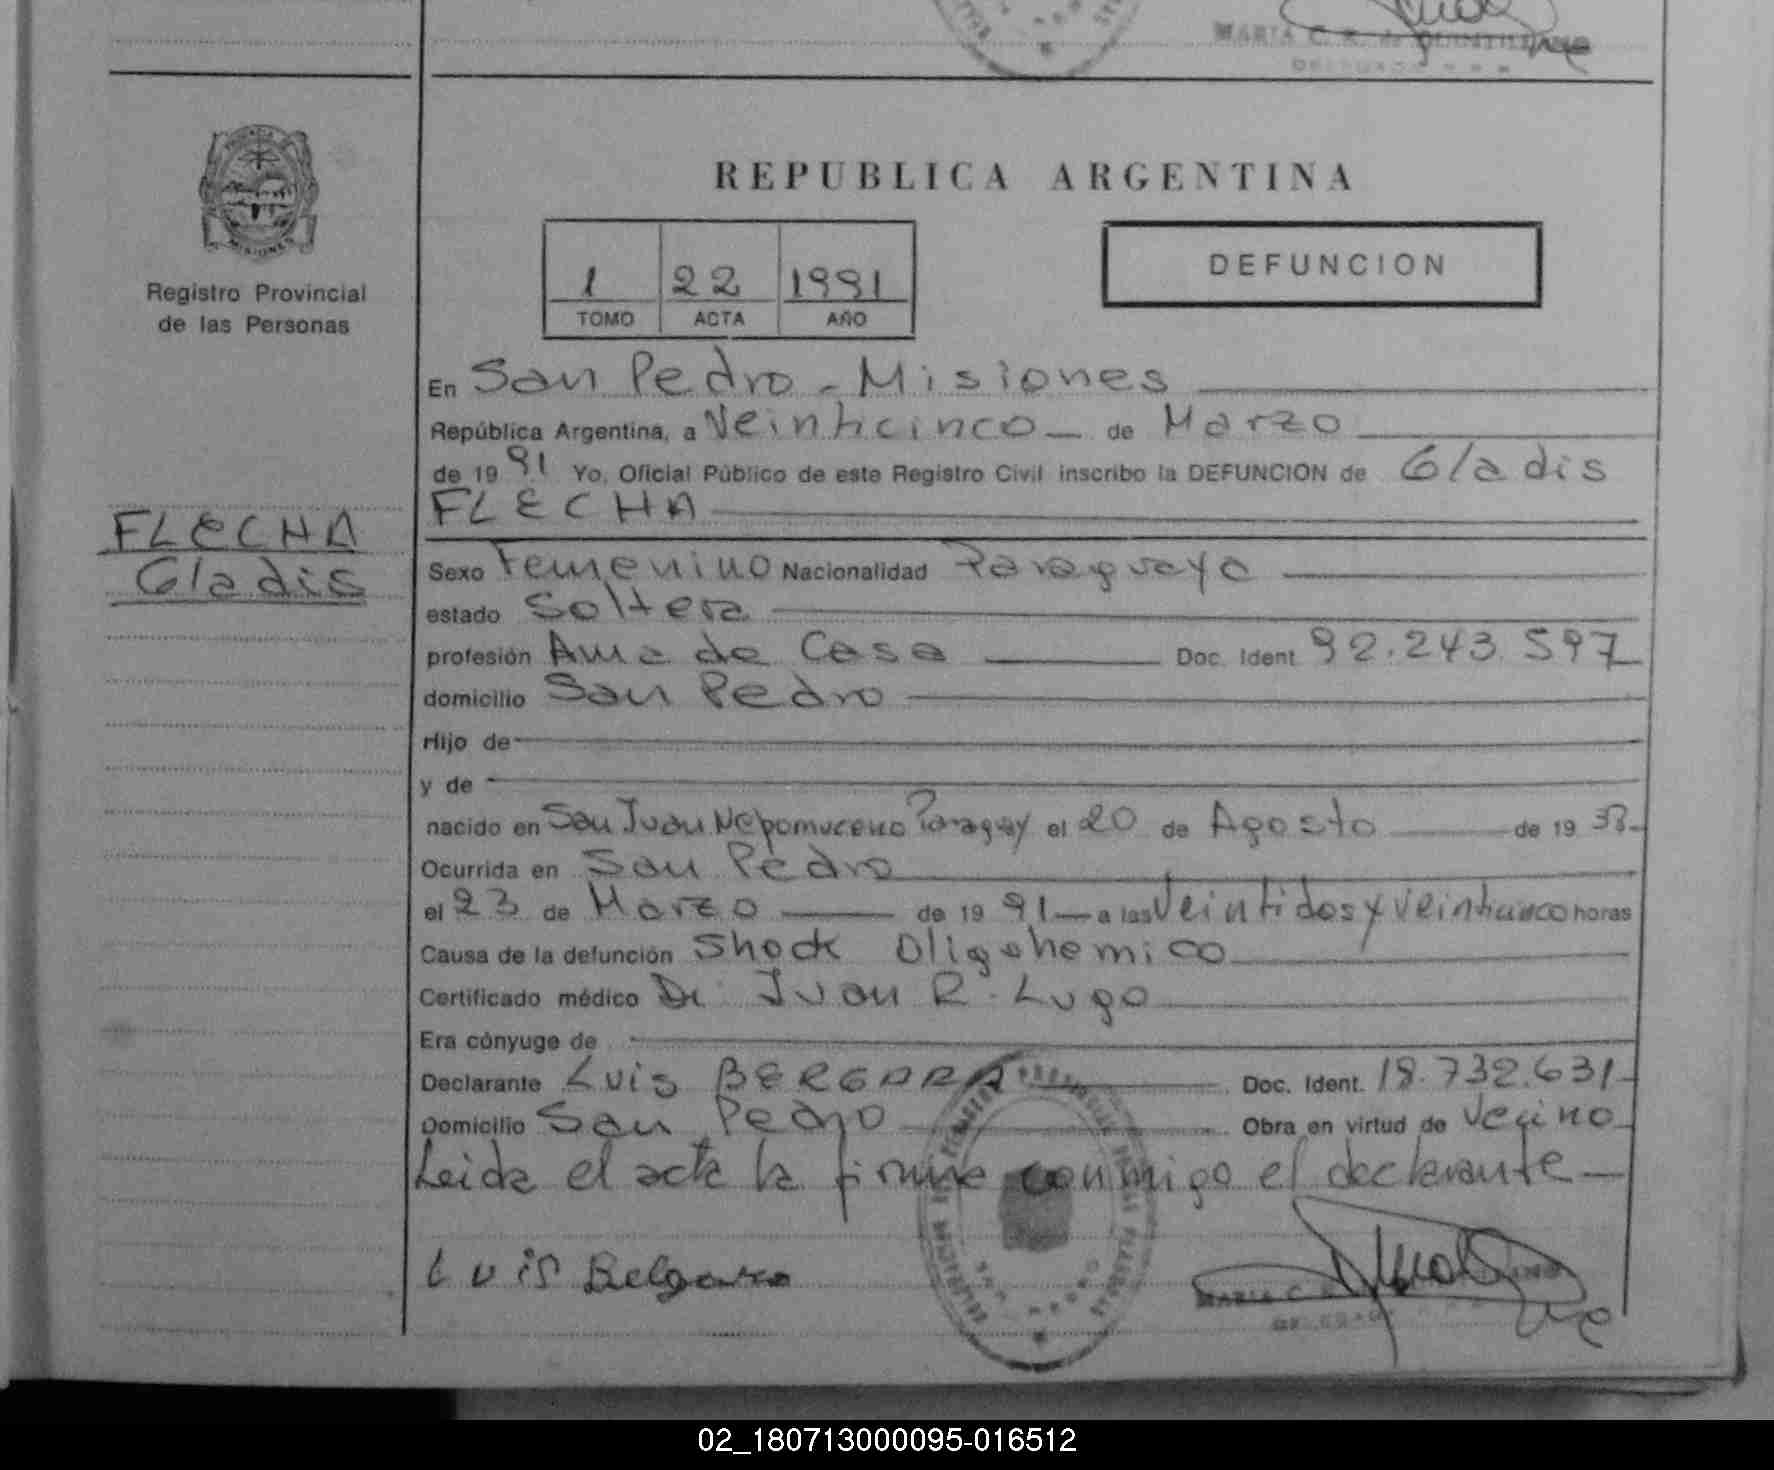 MARIA C. R. de
REPUBLICA ARGENTINA
1 22 1991
TOMO ACTA AÑO
DEFUNCION
MISIONES
Registro Provincial
de las Personas
FLECHA
Gladis
En San Pedro - Misiones
República Argentina, a Veinticinco de Marzo
de 1991 Yo, Oficial Público de este Registro Civil inscribo la DEFUNCION de Gladis
FLECHA
Sexo Femenino Nacionalidad Paraguaya
estado Soltera
profesión Ama de Casa Doc. Ident. 92.243.597
domicilio San Pedro
Hijo de
y de
nacido en San Juan Nepomuceno Paraguay el 20 de Agosto de 19
Ocurrida en San Pedro
el 23 de Marzo de 1991 a las Veintidos y veinticinco horas
Causa de la defunción Shock Oligohemico
Certificado médico Dr. Juan R. Lugo
Era cónyuge de
Declarante Luis BERGARA Doc. Ident. 18.732.631
Domicilio San Pedro Obra en virtud de vecino
Leida el acta la firma conmigo el declarante
Luis Belgara
MARIA C.
02_180713000095-016512